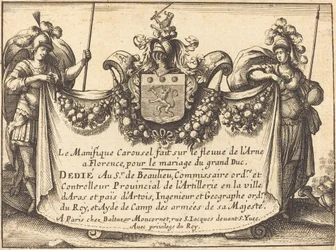 Le Manifique Carousel fait sur le fleuve de l'Arne
a Florence, pour le mariage du grand Duc.
DEDIÉ Au Sr. de Beaulieu, Commissaire ordre. et
Controlleur Provincial de l'Artillerie en la ville
d'Aras et païs d'Artois, Ingenieur et Geographe ordre.
du Roy, et Ayde de Camp des armées de sa Majesté.
A Paris chez Baltazar Moncornet, rue S. Jacques devant S. Yves
Avec privilege du Roy.